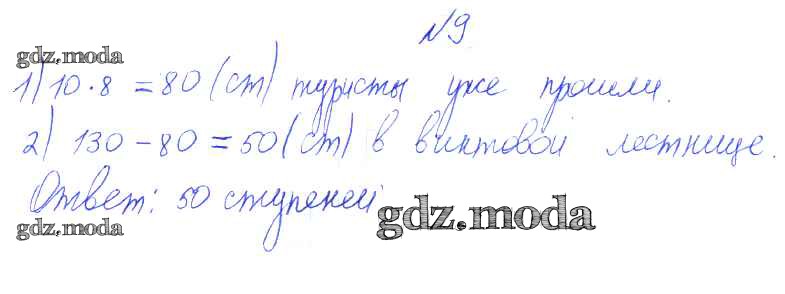 №9
gdz.moda
1) 10·8=80 (ст) туристы уже прошли.
2) 130-80=50 (ст) в винтовой лестнице.
Ответ: 50 ступеней
gdz.moda
gdz.moda